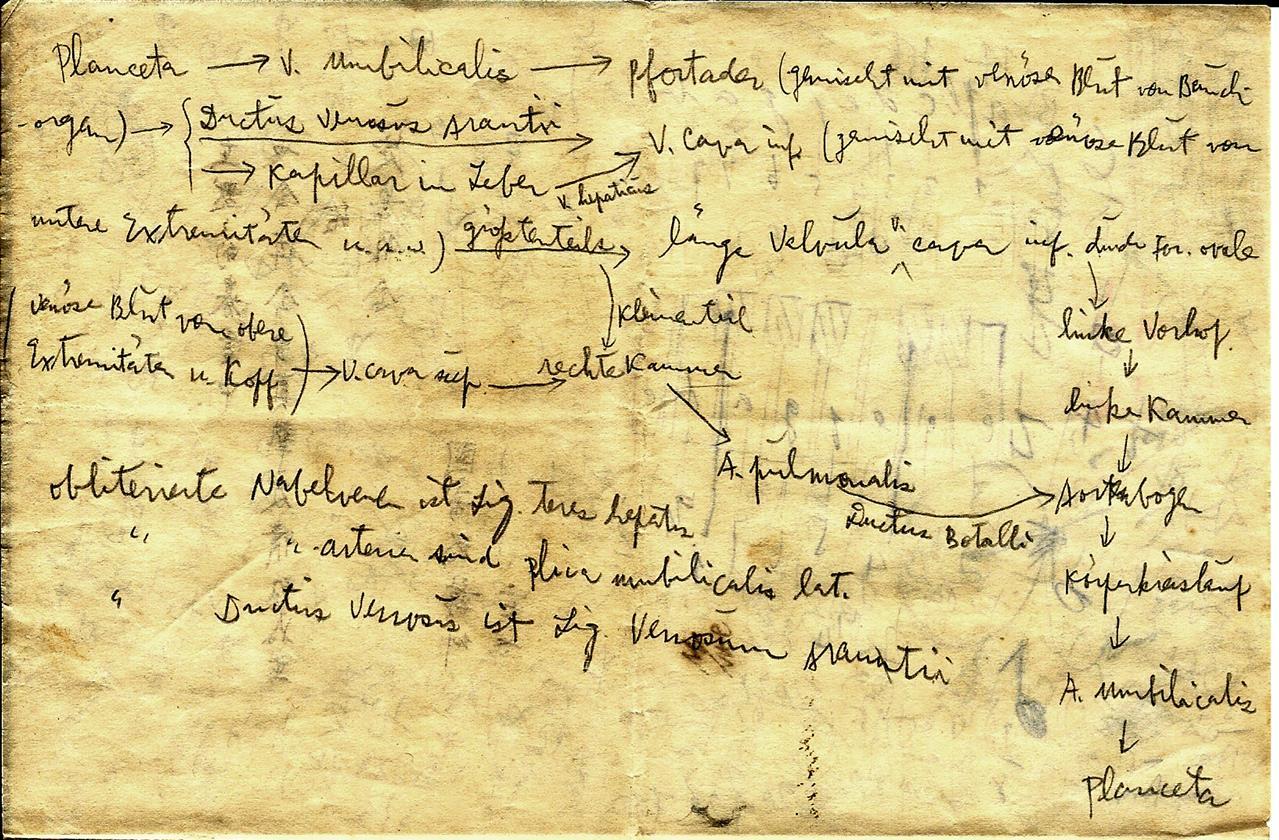 Planceta → V. umbilicalis → Pfortader (gemischt mit venöse Blut von Bauch-
-organ) → { Ductus Venosus Arantii → V. cava inf. (gemischt mit venöse Blut von
→ Kapillar in Leber V. hepaticus
untere Extremitäten u.s.w.) größtenteils → längs Valvula V. cava inf. durch For. ovale
↓ kleinenteil
linke Vorhof.
(venöse Blut von obere
Extremitäten u. Kopf) → V. cava sup. → rechte Kammer
linke Kammer
A. pulmonalis
Ductus Botalli
→ Aortabogen
obliterierte Nabelvenen ist Lig. teres hepatis
" " -arterien sind plica umbilicalis lat.
Körperkreislauf
" Ductus Venosus ist Lig. Venosum Arantii
A. umbilicalis
Planceta